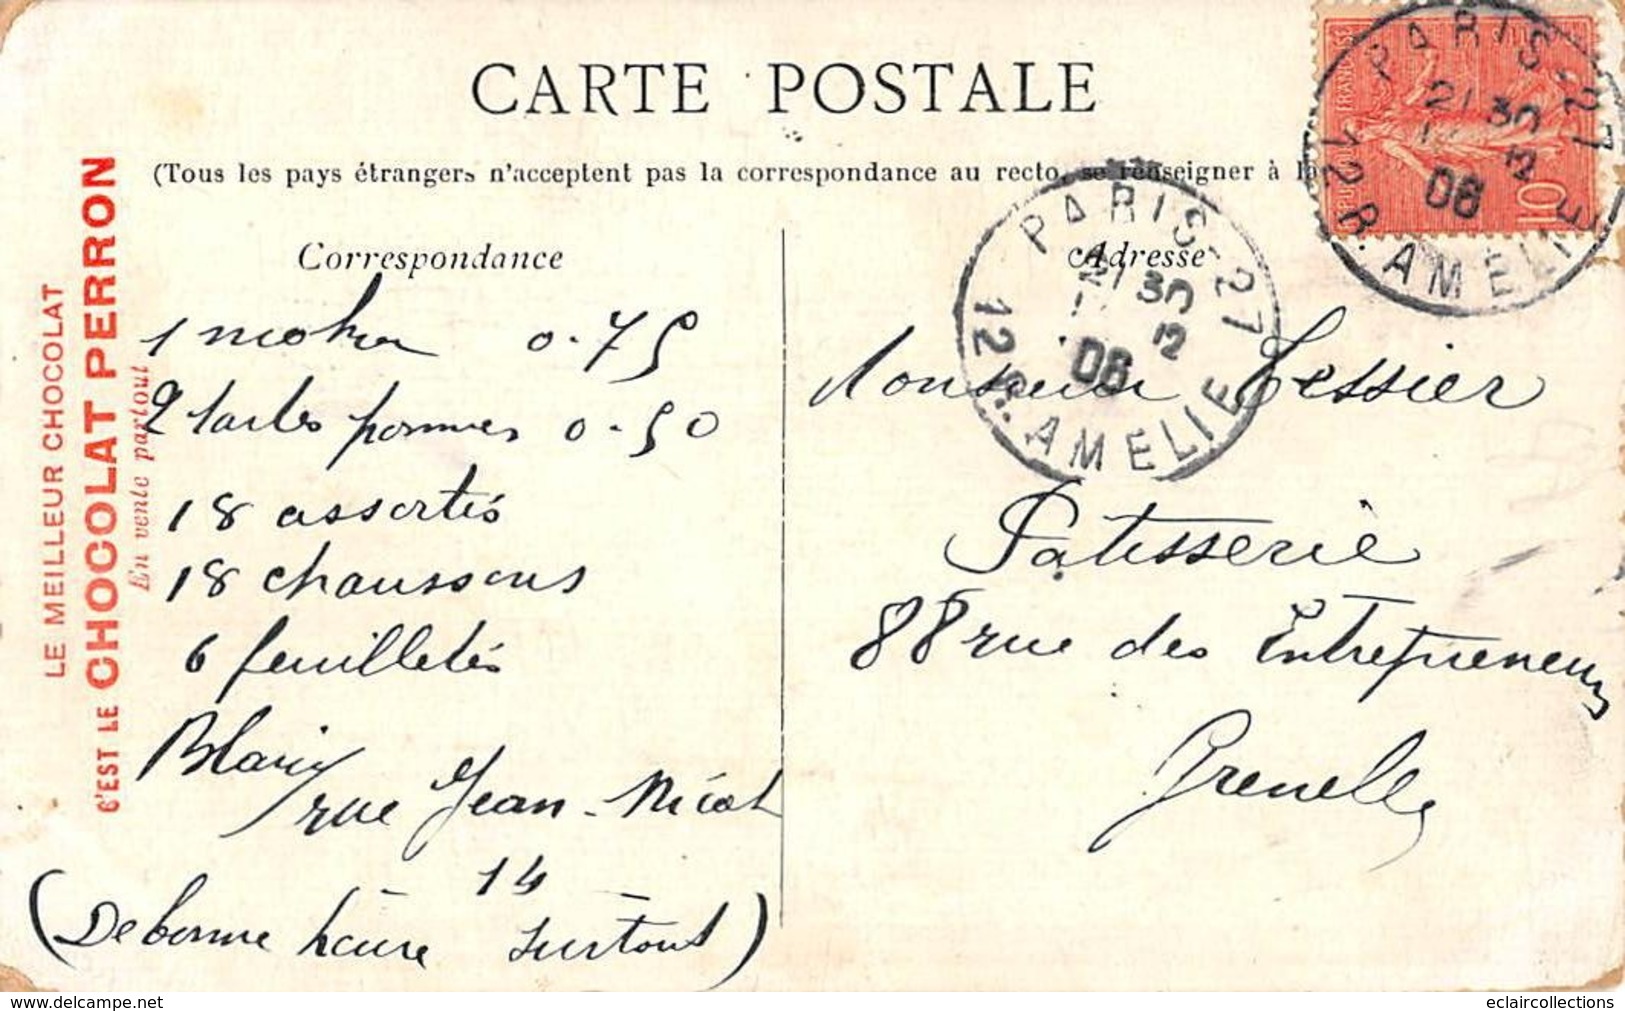 CARTE POSTALE
(Tous les pays étrangers n'acceptent pas la correspondance au recto, se renseigner à la
LE MEILLEUR CHOCOLAT
C'EST LE CHOCOLAT PERRON
En vente partout
Correspondance
1 moka 0.75
2 tartes pommes 0.50
18 assortis
18 chaussons
6 feuilletés
rue Jean-Nicot
14
(De bonne heure surtout)
Adresse
Monsieur Tessier
Patisserie
88 rue des Entrepreneurs
Grenelle
PARIS-27
21 30
12
06
12 R. AMELIE
PARIS-27
21 30
12
06
12 R. AMELIE
10
www.delcampe.net
eclaircollections